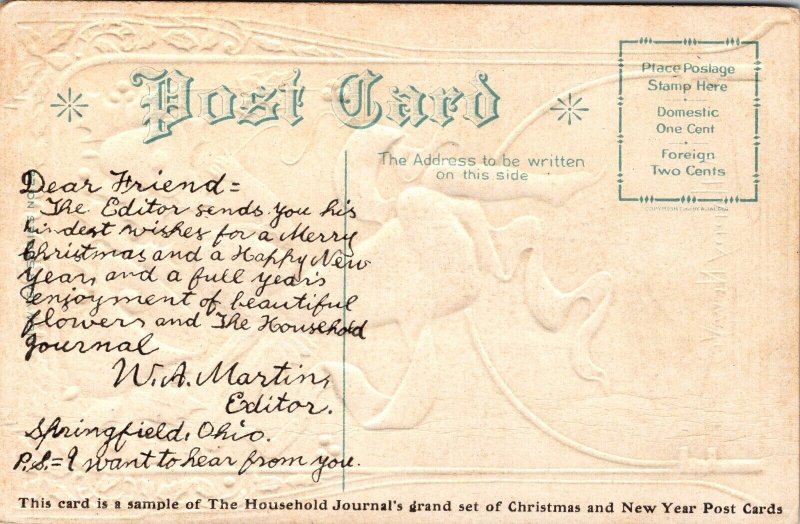 Post Card
Place Postage
Stamp Here
Domestic
One Cent
Foreign
Two Cents
The Address to be written
on this side
Dear Friend=
The Editor sends you his
kindest wishes for a Merry
Christmas and a Happy New
Year, and a full year's
enjoyment of beautiful
flowers and The Household
Journal
W. A. Martin,
Editor.
Springfield, Ohio.
P.S.= I want to hear from you.
This card is a sample of The Household Journal's grand set of Christmas and New Year Post Cards